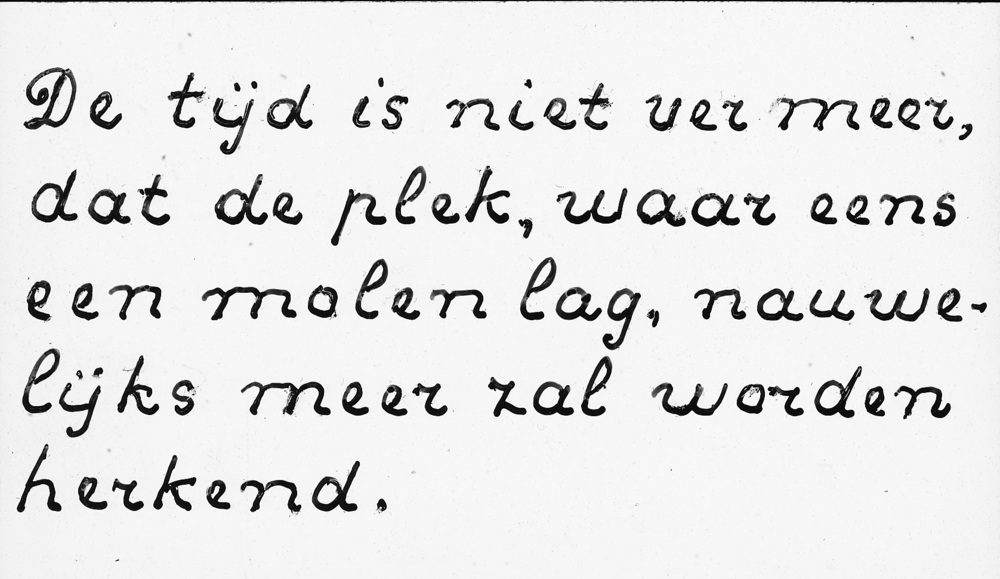 De tijd is niet ver meer,
dat de plek, waar eens
een molen lag, nauwe-
lijks meer zal worden
herkend.